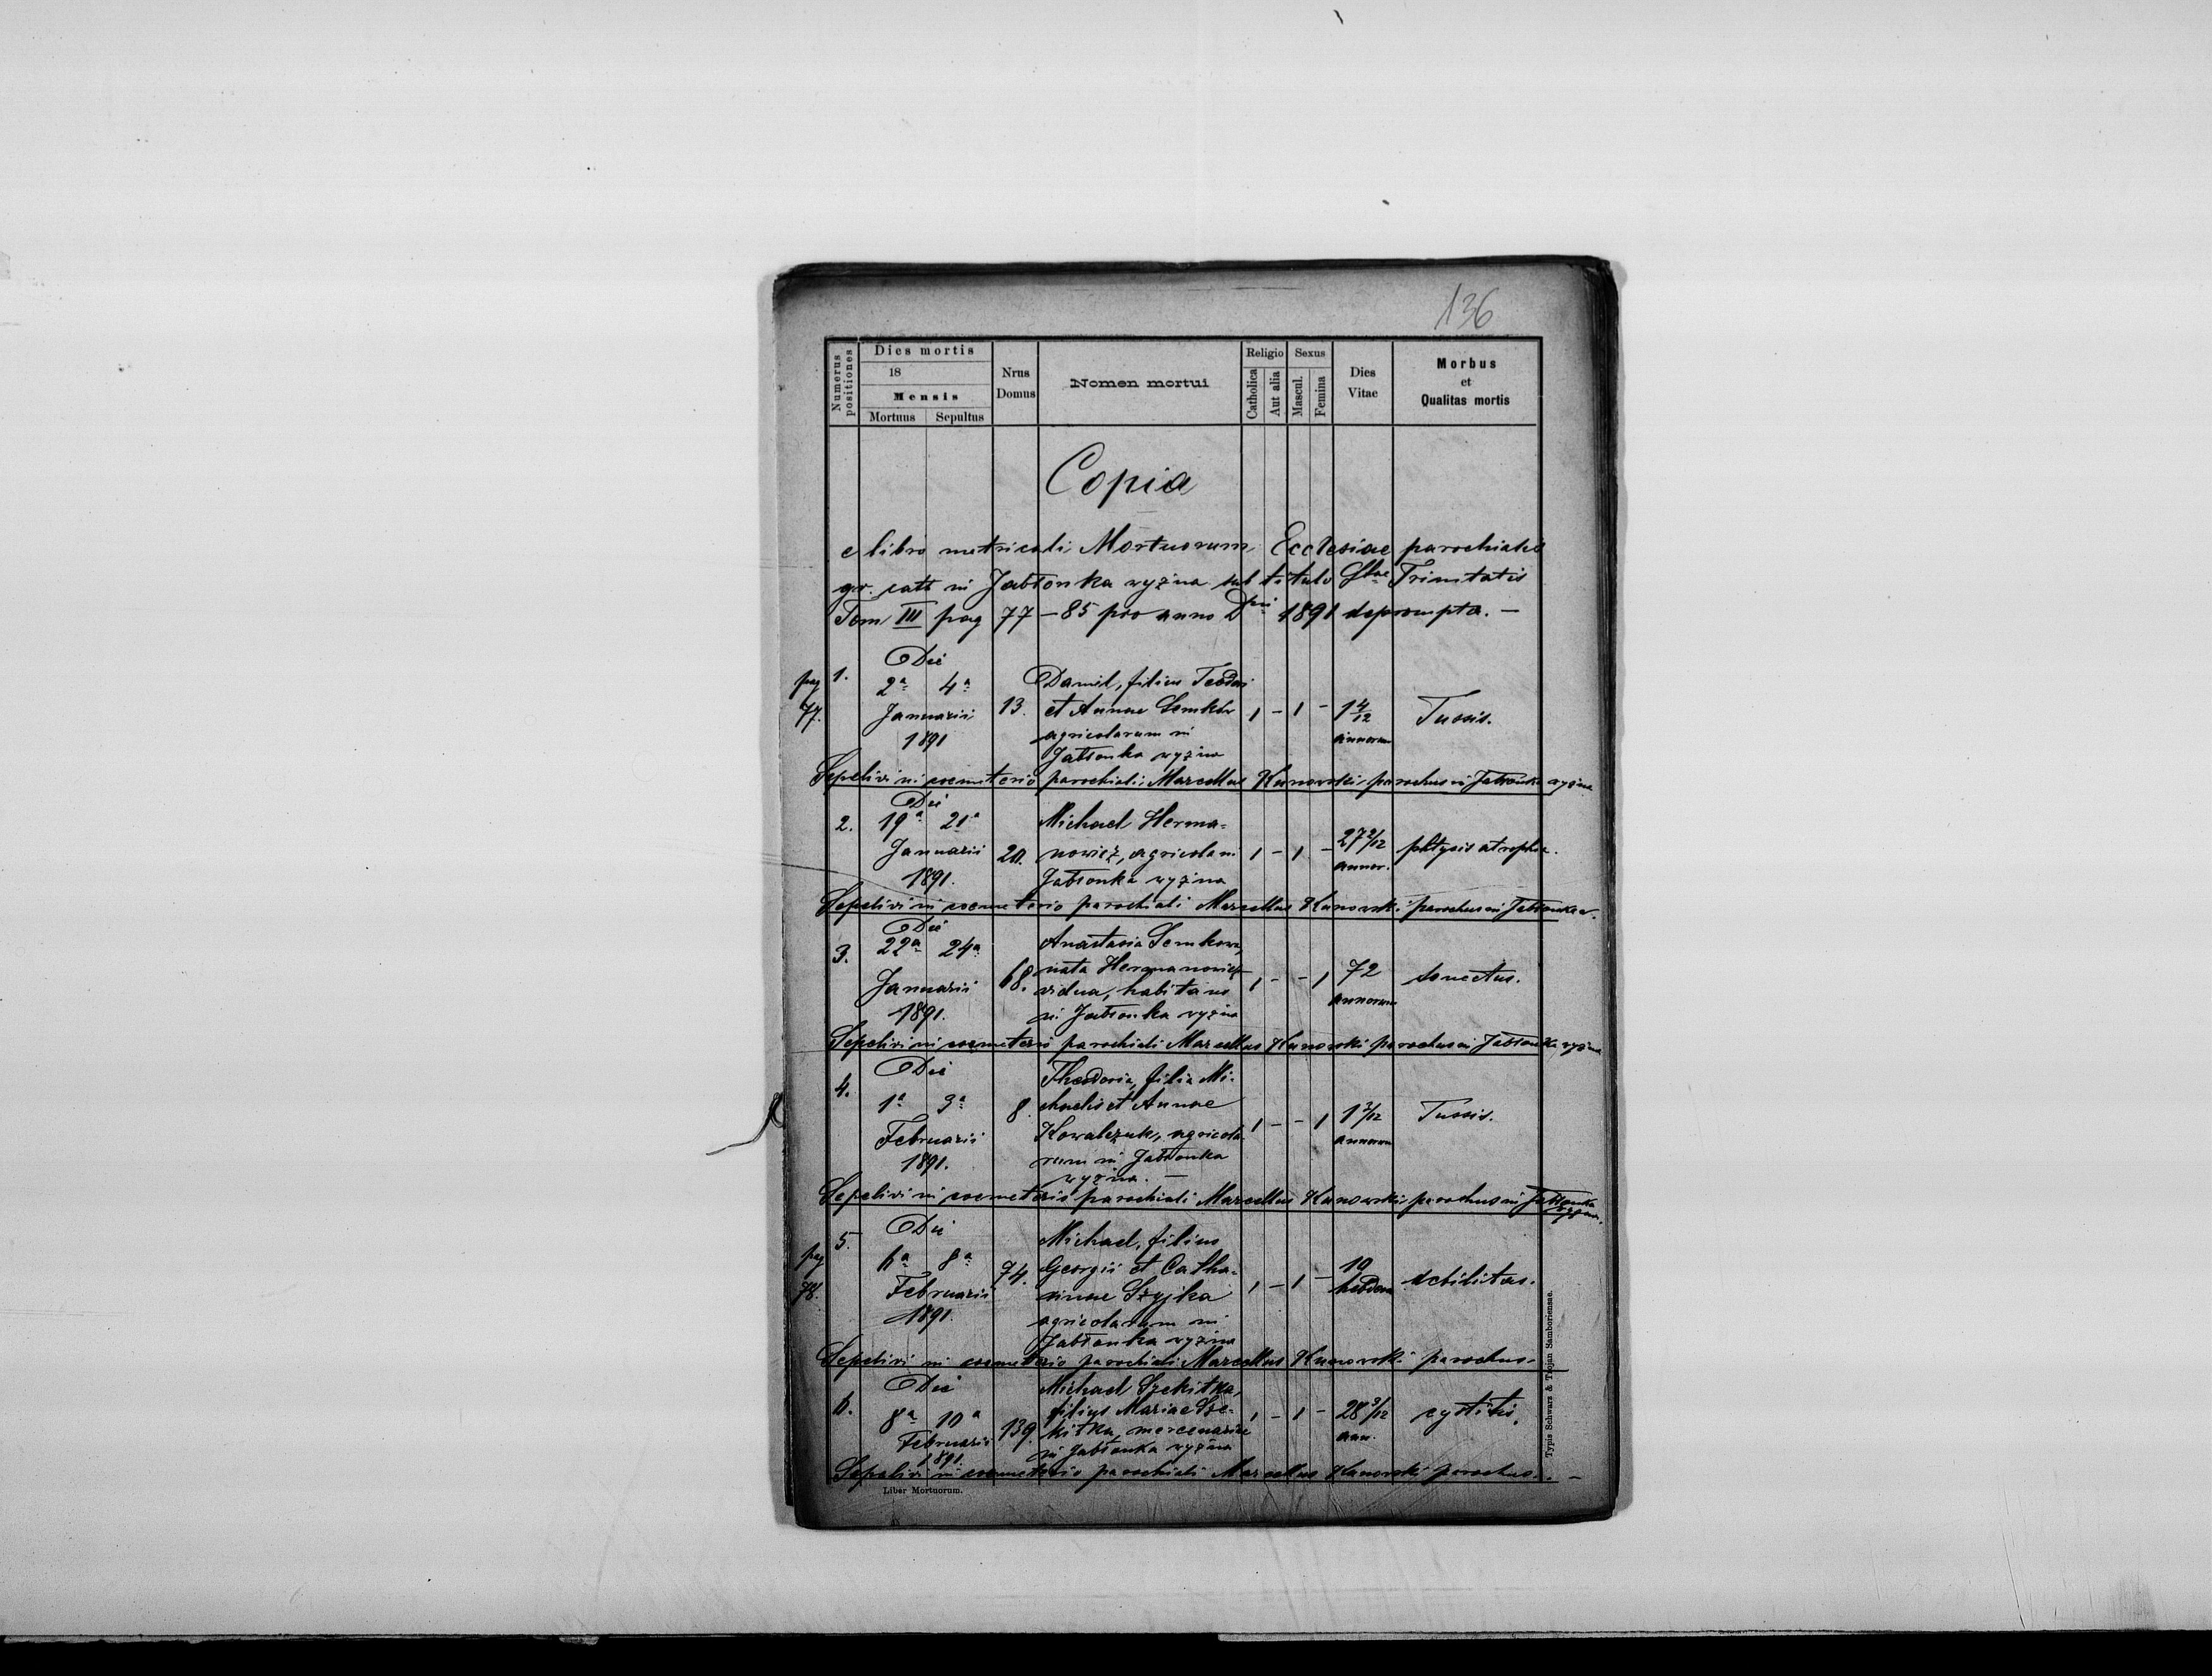 136
Numerus positiones
Dies mortis
18
Mensis
Mortuus Sepultus
Nrus Domus
Nomen mortui
Religio
Catholica Aut alia
Sexus
Mascul. Femina
Dies Vitae
Morbus et Qualitas mortis
Copia
e libro metricali Mortuorum Ecclesiae parochialis
gr. cath in Jabłonka wyżna sub titulo Stae Trinitatis
Tom III pag 77 – 85 pro anno Dni 1891 deprompta. –
pag 77.
1. Die
2a 4a
Januarii
1891
13.
Daniel, filius Teodori
et Annae Semków
agricolarum in
Jabłonka wyżna
1 – 1 –
1 4/12 annorum
Tussis.
Sepelivi in coemeterio parochiali Marcellus Kunowski parochus in Jabłonka wyżna
2. Die
19a 21a
Januarii
1891.
20.
Michael Herma-
nowicz, agricola in
Jabłonka wyżna
1 – 1 –
27 2/12 annor.
phtysis atrophia.
Sepelivi in coemeterio parochiali Marcellus Kunowski parochus in Jabłonka w.
3. Die
22a 24a
Januarii
1891.
68.
Anastasia Semkowa,
nata Hermanowicz
vidua, habitans
in Jabłonka wyżna
1 – – 1
72 annorum
senectus.
Sepelivi in coemeterio parochiali Marcellus Kunowski parochus in Jabłonka wyżna
4. Die
1a 3a
Februarii
1891.
8.
Theodosia, filia Mi-
chaelis et Annae
Kowalczuk, agricola-
rum in Jabłonka
wyżna. –
1 – – 1
annorum
Tussis.
Sepelivi in coemeterio parochiali Marcellus Kunowski parochus in Jabłonka wyżna.
pag 78.
5. Die
6a 8a
Februarii
1891.
74.
Michael, filius
Georgii et Catha-
rinae Szyjka
agricolarum in
Jabłonka wyżna
1 – 1 –
hebdom
debilitas.
Sepelivi in coemeterio parochiali Marcellus Kunowski parochus –
6. Die
8a 10a
Februarii
1891.
139.
Michael Szekitka,
filius Mariae Sze-
kitka, mercenariae
in Jabłonka wyżna
1 – 1 –
28 3/12 ann.
cystitis.
Sepelivi in coemeterio parochiali Marcellus Kunowski parochus. –
Liber Mortuorum.
Typis Schwarz & Trojan Samboriensae.